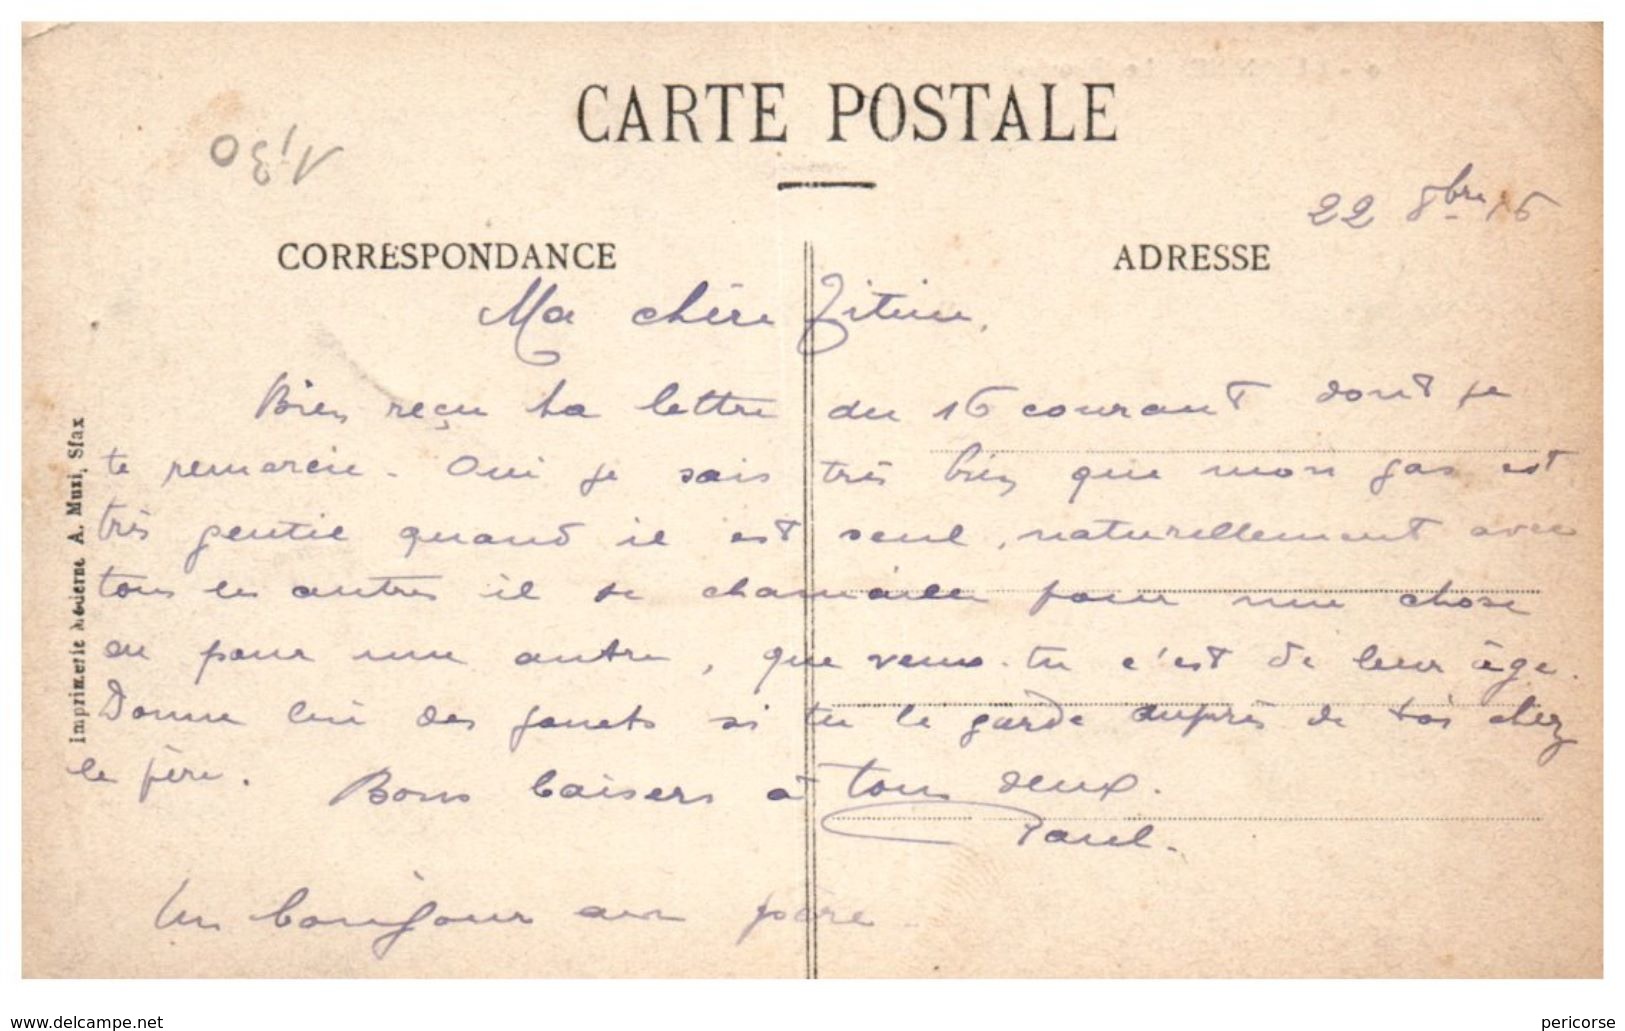 CARTE POSTALE
1,30
22 8bre 15
CORRESPONDANCE
ADRESSE
Ma chère Titine,
Bien reçu ta lettre du 16 courant dont je
te remercie. Oui je sais très bien que mon gas est
très gentil quand il est seul, naturellement avec
tous les autres il se chamaille pour une chose
ou pour une autre, que veux-tu c'est de leur âge.
Donne lui des jouets si tu le garde auprès de toi chez
le père. Bons baisers à tous deux.
Paul.
Un bonjour au père.
Imprimerie Moderne A. Muzi, Sfax
www.delcampe.net
pericorse